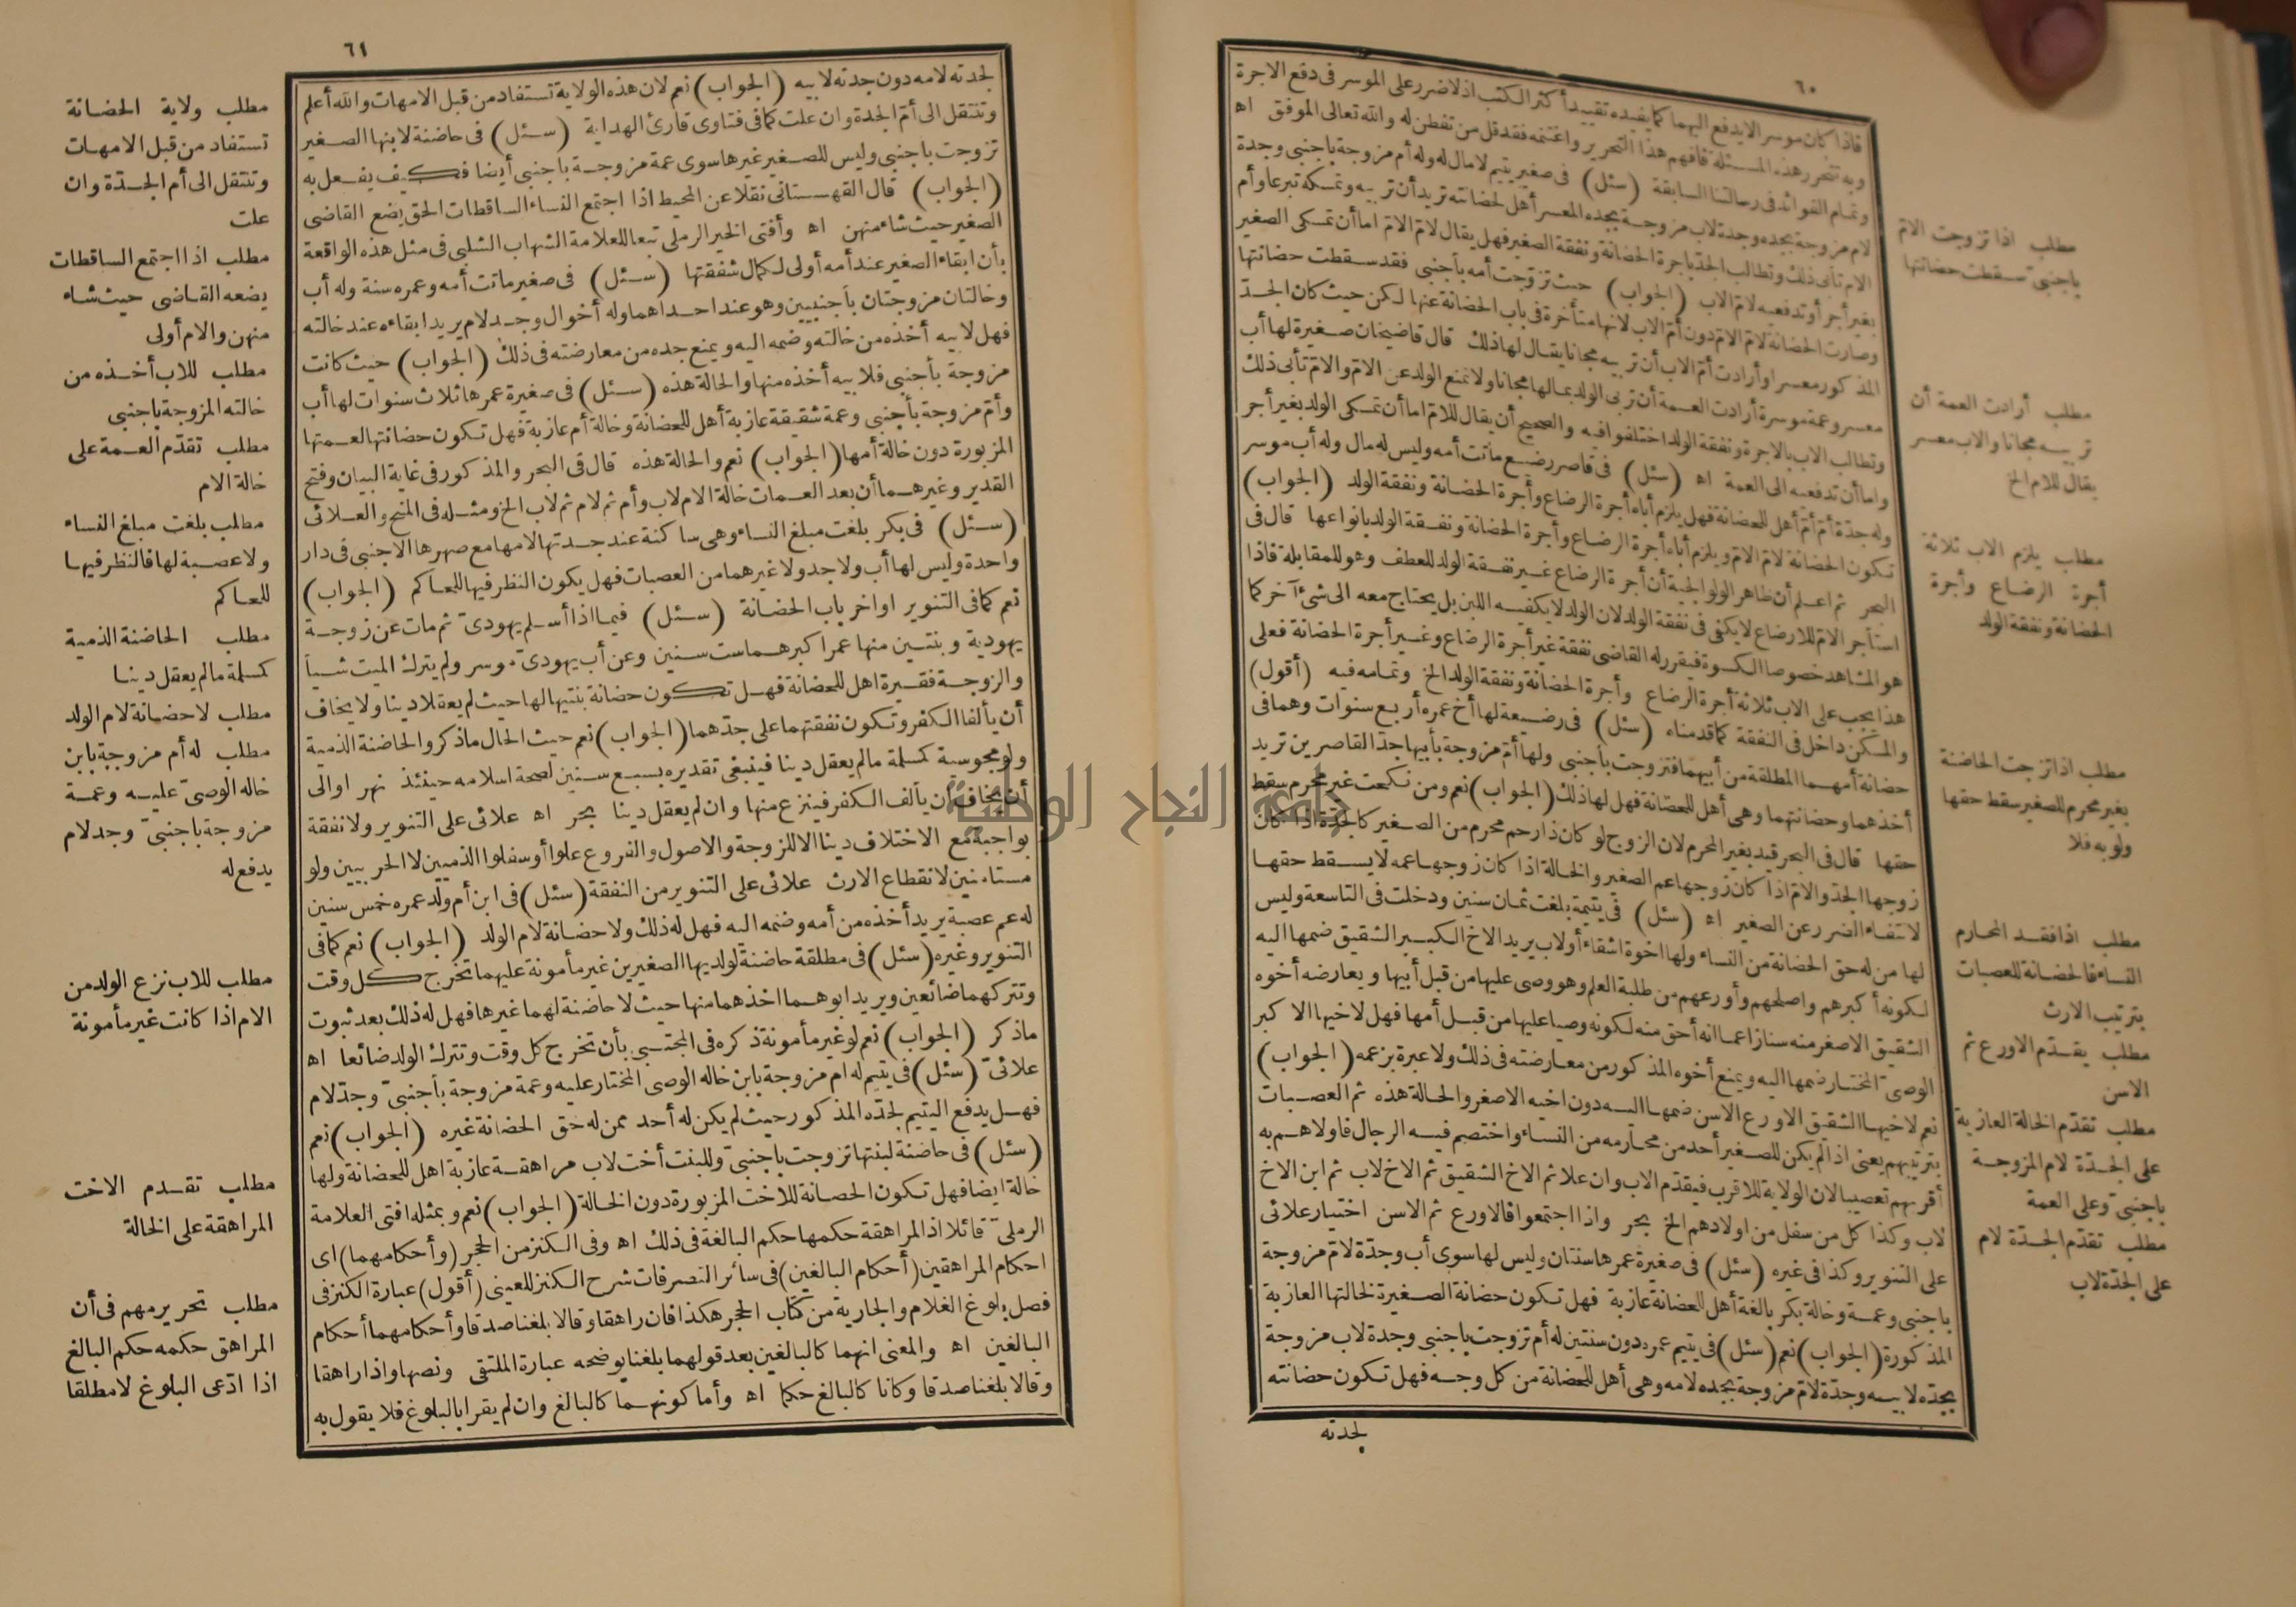 ٦٠
فاذا كان موسر الا يدفع اليهما كما يفيده تقييد أكثر الكتب اذ لا ضرر على الموسر فى دفع الاجرة
وبه تتحرر هذه المسئلة فافهم هذا التحرير واغتنمه فقد قل من تفطن له والله تعالى الموفق اه
وتمام الفوائد فى رسالتنا السابقة (سئل) فى صغير يتيم لا مال له وله أم مزوجة باجنبى وجدة
لام مزوجة بجده وجدة لاب مزوجة بجده المعسر أهل لحضانته تريد أن تربيه وتمسكه تبرعا وأم
الام تأبى ذلك وتطالب الجد باجرة الحضانة ونفقة الصغير فهل يقال لام الام اما أن تمسكى الصغير
بغير أجر أو تدفعيه لام الاب (الجواب) حيث تزوجت أمه بأجنبى فقد سقطت حضانتها
وصارت الحضانة لام الام دون أم الاب لانها متأخرة فى باب الحضانة عنها لكن حيث كان الجد
المذكور معسرا وأرادت أم الاب أن تربيه مجانا يقال لها ذلك قال قاضيخان صغيرة لها أب
معسر وعمة موسرة أرادت العمة أن تربى الولد بمالها مجانا ولا تمنع الولد عن الام والام تأبى ذلك
وتطالب الاب بالاجرة ونفقة الولد اختلفوا فيه والصحيح أن يقال للام اما أن تمسكى الولد بغير أجر
واما أن تدفعيه الى العمة اه (سئل) فى قاصر رضيع ماتت أمه وليس له مال وله أب موسر
وله جدة أم أم أهل للحضانة فهل يلزم أباه أجرة الرضاع وأجرة الحضانة ونفقة الولد (الجواب)
تكون الحضانة لام الام ويلزم أباه أجرة الرضاع وأجرة الحضانة ونفقة الولد بانواعها قال فى
البحر ثم اعلم أن ظاهر الولوالجية أن أجرة الرضاع غير نفقة الولد للعطف وهو للمقابلة فاذا
استأجر الام للارضاع لا يكفى فى نفقة الولد لان الولد لا يكفيه اللبن بل يحتاج معه الى شىء آخر كما
هو المشاهد خصوصا الكسوة فيقرر له القاضى نفقة غير أجرة الرضاع وغير أجرة الحضانة فعلى
هذا يجب على الاب ثلاثة أجرة الرضاع وأجرة الحضانة ونفقة الولد الخ وتمامه فيه (أقول)
والمسكن داخل فى النفقة كما قدمناه (سئل) فى رضيعة لها أخ عمره أربع سنوات وهما فى
حضانة أمهما المطلقة من أبيهما فتزوجت بأجنبى ولها أم مزوجة بأبيها جد القاصرين تريد
أخذهما وحضانتهما وهى أهل للحضانة فهل لها ذلك (الجواب) نعم ومن نكحت غير محرم سقط
حقها قال فى البحر قيد بغير المحرم لان الزوج لو كان ذا رحم محرم من الصغير كالجدة اذا كان
زوجها الجد والام اذا كان زوجها عم الصغير والخالة اذا كان زوجها عمه لا يسقط حقها
لانتفاء الضرر عن الصغير اه (سئل) فى يتيمة بلغت ثمان سنين ودخلت فى التاسعة وليس
لها من له حق الحضانة من النساء ولها اخوة اشقاء أو لاب يريد الاخ الكبير الشقيق ضمها اليه
لكونه أكبرهم واصلحهم وأورعهم من طلبة العلم وهو وصى عليها من قبل أبيها ويعارضه أخوه
الشقيق الاصغر منه سنا زاعما انه أحق منه لكونه وصيا عليها من قبل أمها فهل لاخيها الاكبر
الوصى المختار ضمها اليه ويمنع أخوه المذكور من معارضته فى ذلك ولا عبرة بزعمه (الجواب)
نعم لاخيها الشقيق الاورع الاسن ضمها اليه دون اخيه الاصغر والحالة هذه ثم العصبات
بترتيبهم يعنى اذا لم يكن للصغير أحد من محارمه من النساء واختصم فيه الرجال فاولاهم به
أقربهم تعصيبا لان الولاية للاقرب فيقدم الاب وان علا ثم الاخ الشقيق ثم الاخ لاب ثم ابن الاخ
لاب وكذا كل من سفل من اولادهم الخ بحر واذا اجتمعوا فالاورع ثم الاسن اختيار علائى
على التنوير وكذا فى غيره (سئل) فى صغيرة عمرها سنتان وليس لها سوى أب وجدة لام مزوجة
باجنبى وعمة وخالة بكر بالغة أهل للحضانة عازبة فهل تكون حضانة الصغيرة لخالتها العازبة
المذكورة (الجواب) نعم (سئل) فى يتيم عمره دون سنتين له أم تزوجت باجنبى وجدة لاب مزوجة
بجده لابيه وجدة لام مزوجة بجده لامه وهى أهل للحضانة من كل وجه فهل تكون حضانته
لجدته
مطلب اذا تزوجت الام
باجنبى سقطت حضانتها
مطلب أرادت العمة أن
تربيه مجانا والاب معسر
يقال للام الخ
مطلب يلزم الاب ثلاثة
أجرة الرضاع وأجرة
الحضانة ونفقة الولد
مطلب اذا تزوجت الحاضنة
بغير محرم للصغير سقط حقها
ولو به فلا
مطلب اذا فقد المحارم
النساء فالحضانة للعصبات
بترتيب الارث
مطلب يقدم الاورع ثم
الاسن
مطلب تقدم الخالة العازبة
على الجدة لام المزوجة
باجنبى وعلى العمة
مطلب تقدم الجدة لام
على الجدة لاب
٦١
لجدته لامه دون جدته لابيه (الجواب) نعم لان هذه الولاية تستفاد من قبل الامهات والله أعلم
وتنتقل الى أم الجدة وان علت كما فى فتاوى قارئ الهداية (سئل) فى حاضنة لابنها الصغير
تزوجت باجنبى وليس للصغير غيرها سوى عمة مزوجة باجنبى أيضا فكيف يفعل به
(الجواب) قال القهستانى نقلا عن المحيط اذا اجتمع النساء الساقطات الحق يضع القاضى
الصغير حيث شاء منهن اه وأفتى الخير الرملى تبعا للعلامة الشهاب الشلبى فى مثل هذه الواقعة
بأن ابقاء الصغير عند أمه أولى لكمال شفقتها (سئل) فى صغير ماتت أمه وعمره سنة وله أب
وخالتان مزوجتان بأجنبيين وهو عند احداهما وله أخوال وجد لام يريد ابقاءه عند خالته
فهل لابيه أخذه من خالته وضمه اليه ويمنع جده من معارضته فى ذلك (الجواب) حيث كانت
مزوجة بأجنبى فلابيه أخذه منها والحالة هذه (سئل) فى صغيرة عمرها ثلاث سنوات لها أب
وأم مزوجة بأجنبى وعمة شقيقة عازبة أهل للحضانة وخالة أم عازبة فهل تكون حضانتها لعمتها
المزبورة دون خالة أمها (الجواب) نعم والحالة هذه قال فى البحر والمذكور فى غاية البيان وفتح
القدير وغيرهما أن بعد العمات خالة الام لاب وأم ثم لام ثم لاب الخ ومثله فى المنح والعلائى
(سئل) فى بكر بلغت مبلغ النساء وهى ساكنة عند جدتها لامها مع صهرها الاجنبى فى دار
واحدة وليس لها أب ولا جد ولا غيرهما من العصبات فهل يكون النظر فيها للحاكم (الجواب)
نعم كما فى التنوير اواخر باب الحضانة (سئل) فيما اذا أسلم يهودى ثم مات عن زوجة
يهودية وبنتين منها عمر اكبرهما ست سنين وعن أب يهودى موسر ولم يترك الميت شيأ
والزوجة فقيرة اهل للحضانة فهل تكون حضانة بنتيها لها حيث لم يعقلا دينا ولا يخاف
أن يألفا الكفر وتكون نفقتهما على جدهما (الجواب) نعم حيث الحال ماذكر والحاضنة الذمية
ولو مجوسية كمسلمة مالم يعقل دينا فينبغى تقديره بسبع سنين لصحة اسلامه حينئذ نهر او الى
أن يخاف أن يألف الكفر فينزع منها وان لم يعقل دينا بحر اه علائى على التنوير ولا نفقة
بواجبة مع الاختلاف دينا الا للزوجة والاصول والفروع علوا أو سفلوا الذميين لا الحربيين ولو
مستأمنين لانقطاع الارث علائى على التنوير من النفقة (سئل) فى ابن أم ولد عمره خمس سنين
له عم عصبة يريد أخذه من أمه وضمه اليه فهل له ذلك ولا حضانة لام الولد (الجواب) نعم كما فى
التنوير وغيره (سئل) فى مطلقة حاضنة لولديها الصغيرين غير مأمونة عليهما تخرج كل وقت
وتتركهما ضائعين ويريد ابوهما اخذهما منها حيث لا حاضنة لهما غيرها فهل له ذلك بعد ثبوت
ماذكر (الجواب) نعم لو غير مأمونة ذكره فى المجتبى بأن تخرج كل وقت وتترك الولد ضائعا اه
علائى (سئل) فى يتيم له ام مزوجة بابن خاله الوصى المختار عليه وعمة مزوجة بأجنبى وجد لام
فهل يدفع اليتيم لجده المذكور حيث لم يكن له أحد ممن له حق الحضانة غيره (الجواب) نعم
(سئل) فى حاضنة لبنتها تزوجت باجنبى وللبنت أخت لاب مراهقة عازبة اهل للحضانة ولها
خالة ايضا فهل تكون الحضانة للاخت المزبورة دون الخالة (الجواب) نعم وبمثله افتى العلامة
الرملى قائلا اذ المراهقة حكمها حكم البالغة فى ذلك اه وفى الكنز من الحجر (وأحكامهما) اى
احكام المراهقين (أحكام البالغين) فى سائر التصرفات شرح الكنز للعينى (أقول) عبارة الكنز فى
فصل بلوغ الغلام والجارية من كتاب الحجر هكذا فان راهقا وقالا بلغنا صدقا وأحكامهما أحكام
البالغين اه والمعنى انهما كالبالغين بعد قولهما بلغنا يوضحه عبارة الملتقى ونصها واذا راهقا
وقالا بلغنا صدقا وكانا كالبالغ حكما اه وأما كونهما كالبالغ وان لم يقرا بالبلوغ فلا يقول به
مطلب ولاية الحضانة
تستفاد من قبل الامهات
وتنتقل الى أم الجدة وان
علت
مطلب اذا اجتمع الساقطات
يضعه القاضى حيث شاء
منهن والام أولى
مطلب للاب أخذه من
خالته المزوجة باجنبى
مطلب تقدم العمة على
خالة الام
مطلب بلغت مبلغ النساء
ولا عصبة لها فالنظر فيها
للحاكم
مطلب الحاضنة الذمية
كمسلمة مالم يعقل دينا
مطلب لا حضانة لام الولد
مطلب له أم مزوجة بابن
خاله الوصى عليه وعمة
مزوجة باجنبى وجد لام
يدفع له
مطلب للاب نزع الولد من
الام اذا كانت غير مأمونة
مطلب تقدم الاخت
المراهقة على الخالة
مطلب تحرير مهم فى أن
المراهق حكمه حكم البالغ
اذا ادعى البلوغ لا مطلقا
جامعة النجاح الوطنية